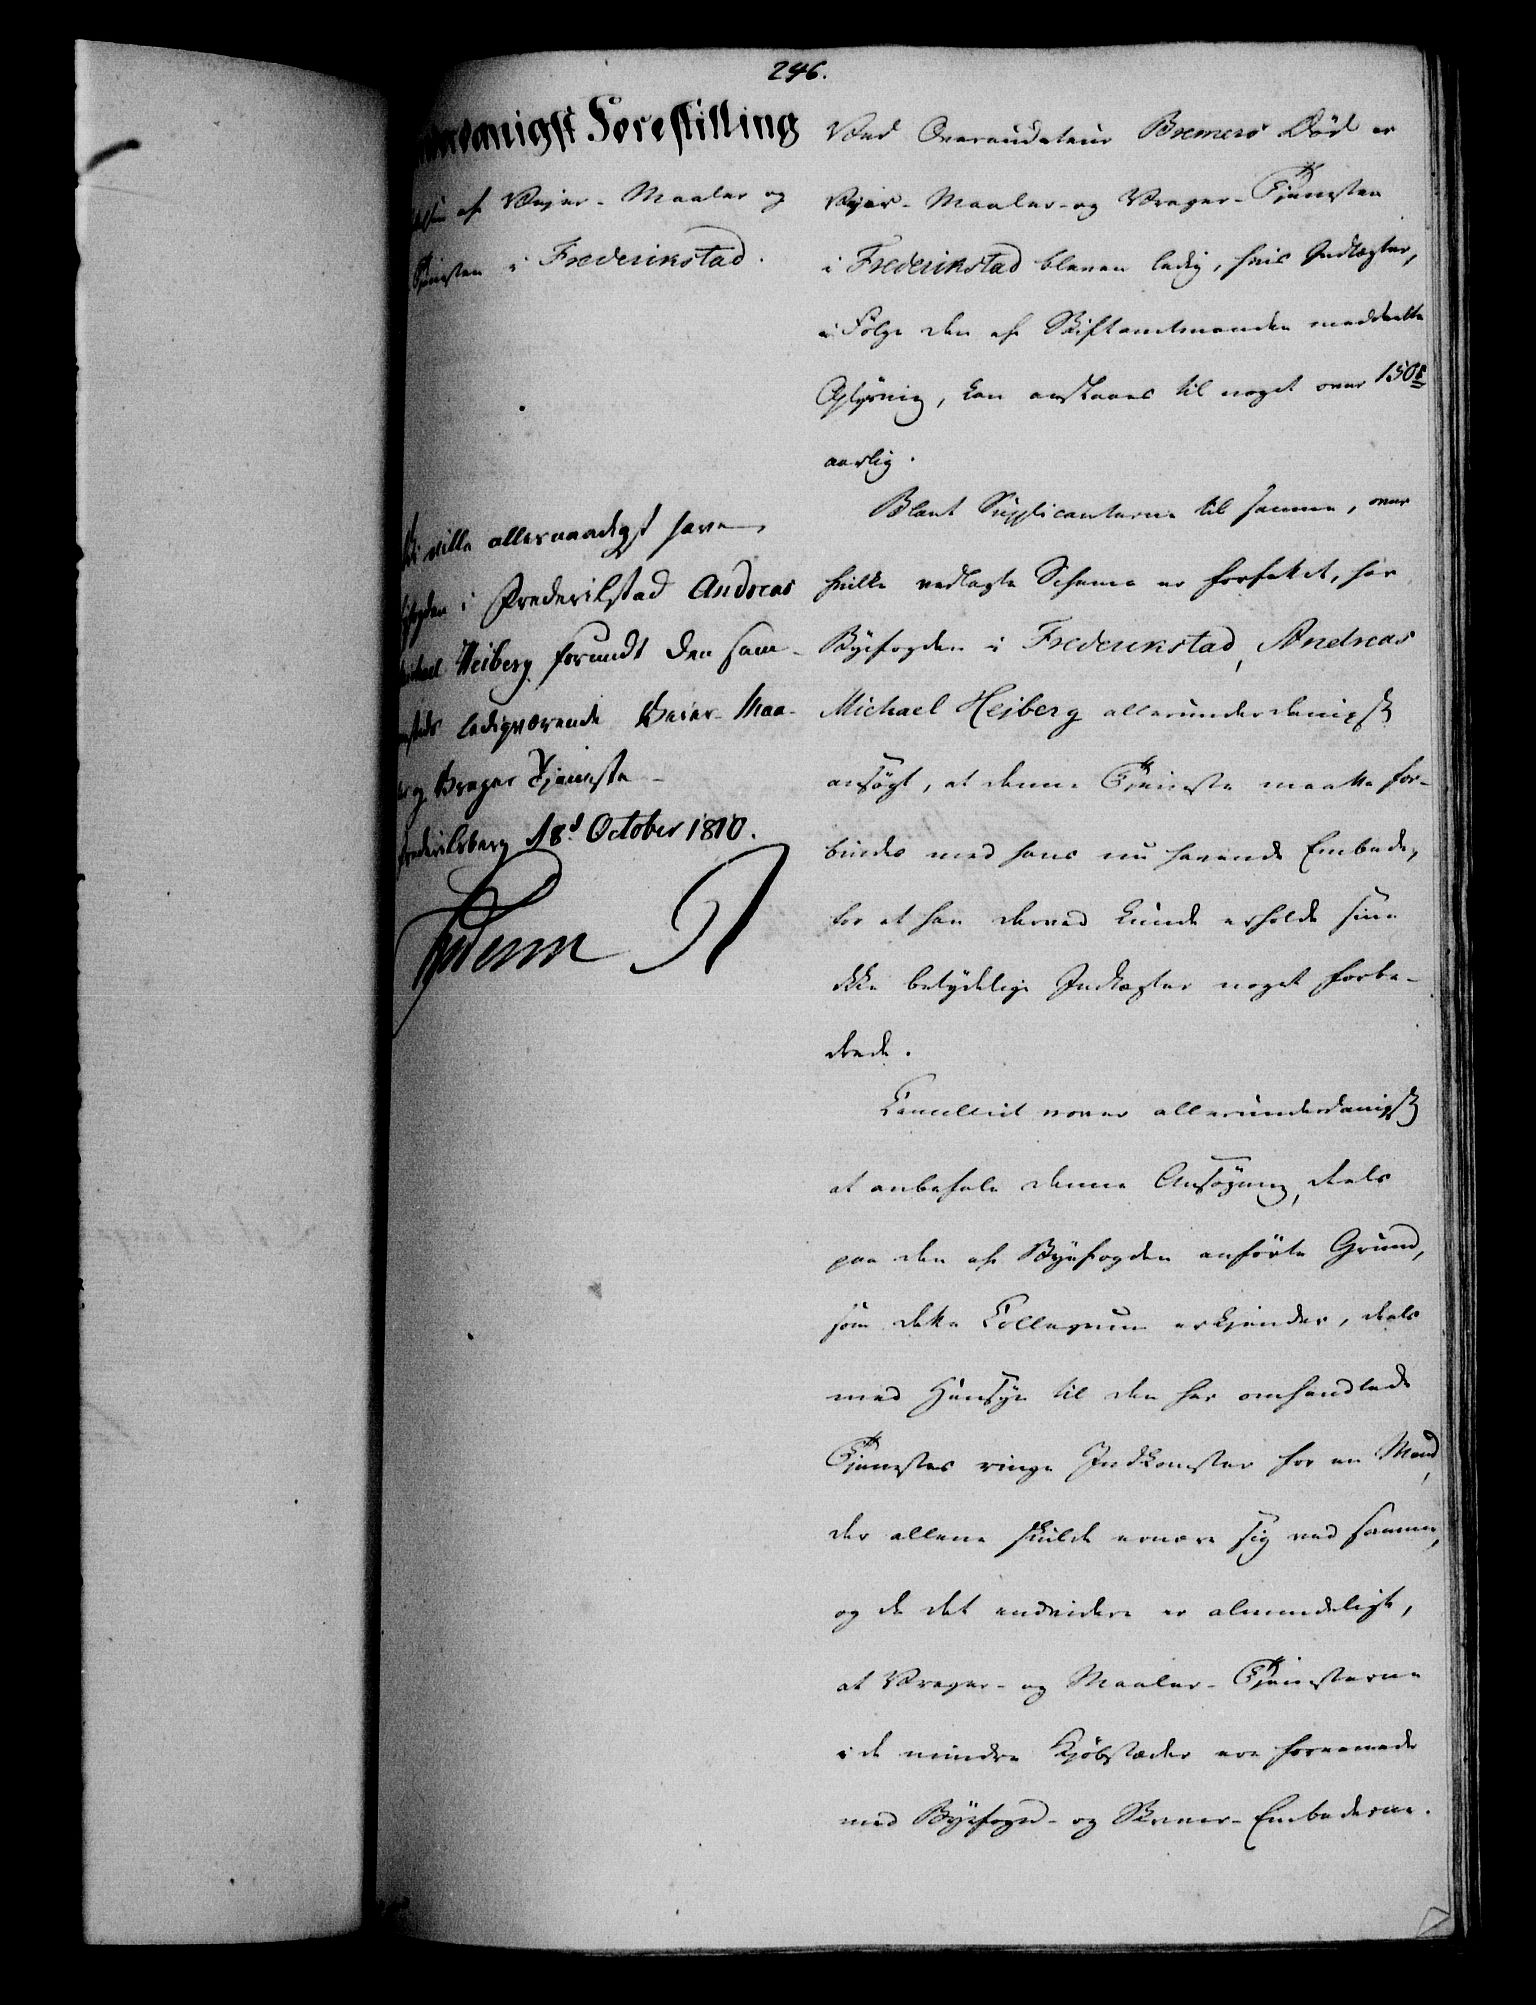 246.
underdanigst Forestilling
af Vejer- Maaler og
Tjenesten i Frederikstad.
Vi ville allernaadigst have
Byfogden i Frederikstad Andreas
Michael Heiberg forundt den sam-
mesteds ledigværende Veier- Maa-
ler og Vrager Tjeneste
Frederiksberg d 8d October 1810.
Frederik R
Ved Overauditeur Bremers Död er
Vejer- Maaler- og Vrager-Tjenesten
i Frederikstad bleven ledig, hvis Indtægter,
i Fölge den af Stiftamtmanden meddeelte
Oplysning, kan anslaaes til noget over 150
aarlig.
Blant Supplicanterne til samme, over
hvilke vedlagte Schema er forfattet, har
Byefogden i Frederikstad, Andreas
Michael Heiberg allerunderdanigst
ansögt, at denne Tjeneste maatte for-
bindes med hans nu havende Embede,
for at han derved kunde erholde sine
ikke betydelige Indtægter noget forbe-
drede.
Cancelliet vover allerunderdanigst
at anbefale denne Ansögning, deels
paa den af Byefogden anförte Grund,
som dette Collegium erkjender, deels
med Hensyn til den her omhandlede
Tjenestes ringe Indkomster for en Mand,
der allene skulde ernære sig ved samme,
og da det endvidere er almindeligt,
at Vrager- og Maaler-Tjenesterne
i de mindre Kjöbstæder ere foreenede
med Byefoged- og Skriver-Embederne.